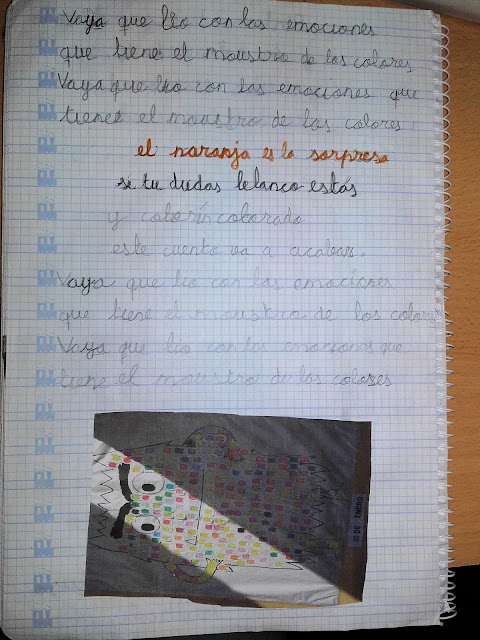 Vaya que lio con las emociones
que tiene el moustro de los colores
Vaya que lio con las emociones que
tiene el moustro de los colores.
el naranja es la sorpresa
si tu dudas blanco estás
y colorín colorado
este cuento va a acabar.
Vaya que lio con las emociones
que tiene el moustro de los colores
Vaya que lio con las emociones que
tiene el moustro de los colores
10 DE ENERO